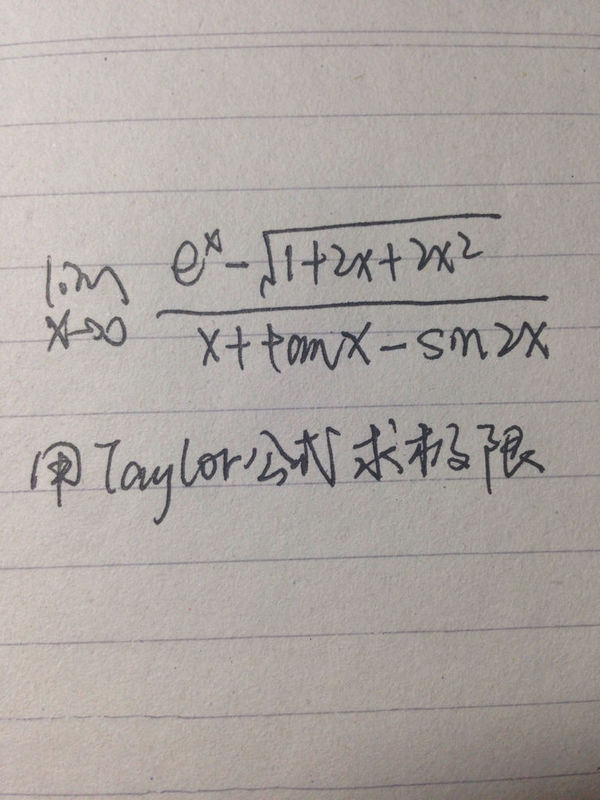 lim x→0 (e^x - √(1+2x+2x^2)) / (x + tan x - sin 2x)
用Taylor公式求极限